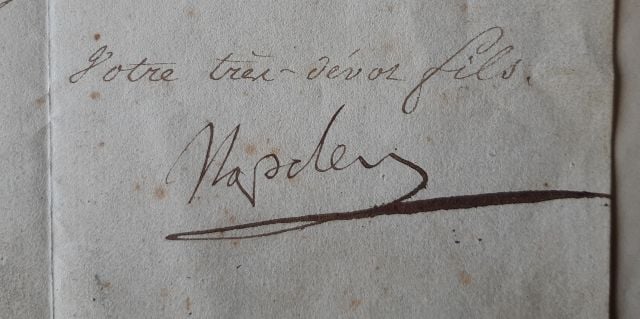 Votre très-dévot fils.
Napoleon